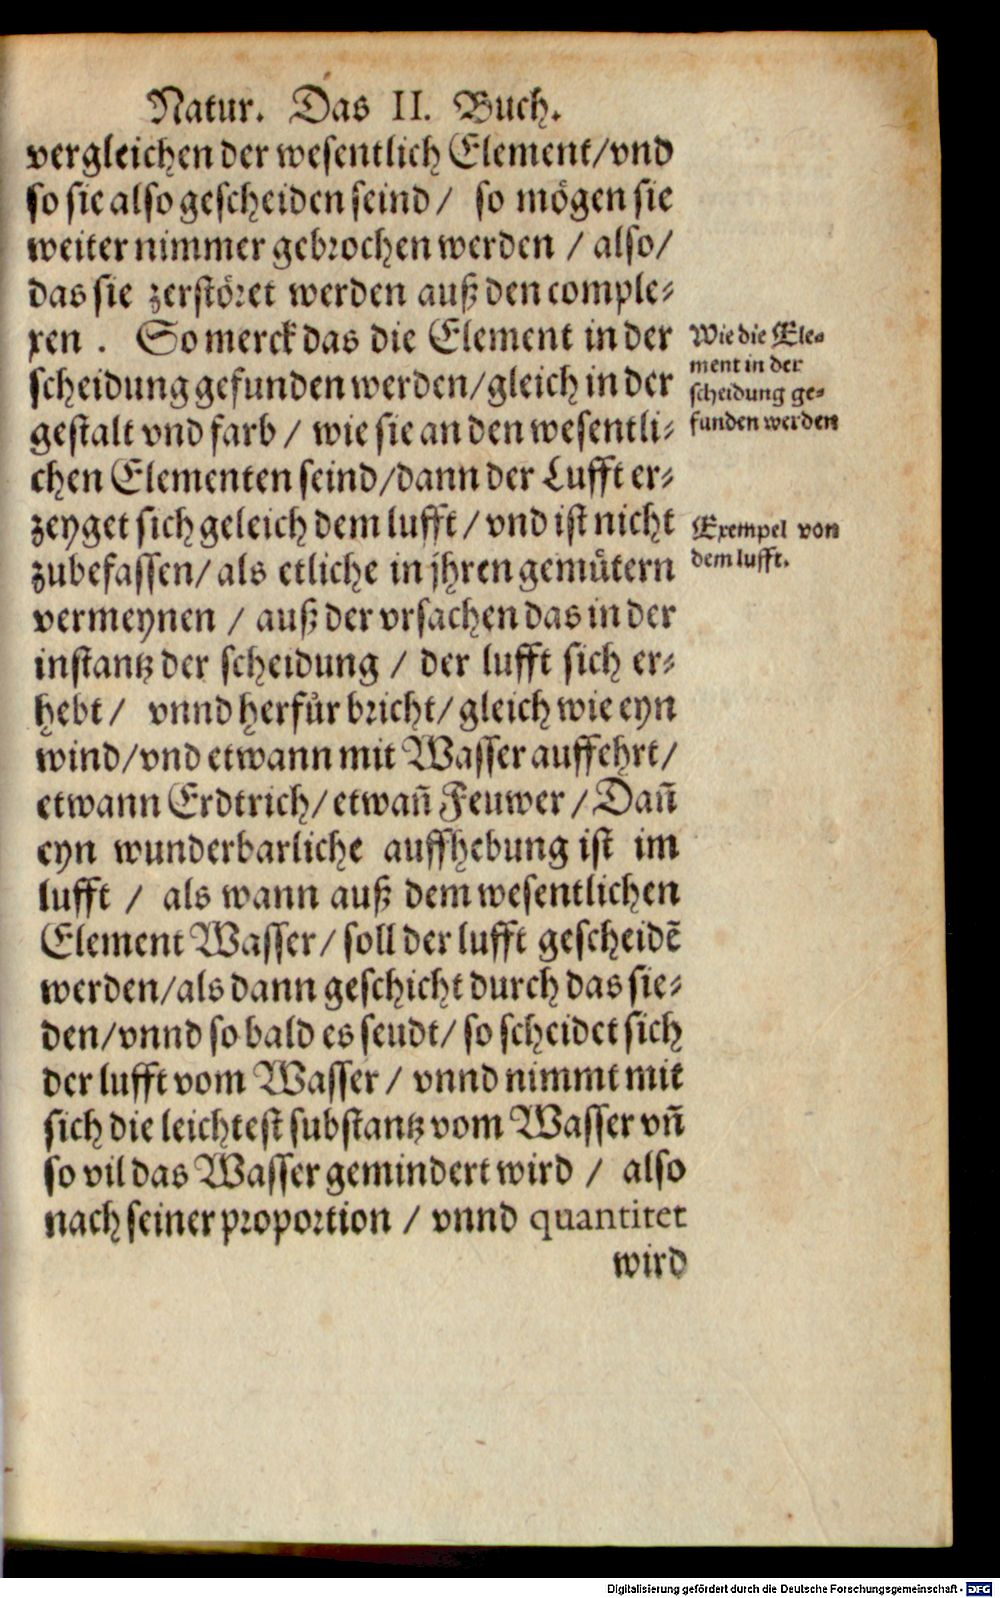 Natur. Das II. Buch.
vergleichen der wesentlich Element/vnd
so sie also gescheiden seind/ so mögen sie
weiter nimmer gebrochen werden / also/
das sie zerstöret werden auß den comple-
xen . So merck das die Element in der
scheidung gefunden werden/gleich in der
gestalt vnd farb / wie sie an den wesentli-
chen Elementen seind/dann der Lufft er-
zeyget sich geleich dem lufft / vnd ist nicht
zubefassen/ als etliche in jhren gemuͤtern
vermeynen / auß der vrsachen das in der
instantz der scheidung / der lufft sich er-
hebt / vnnd herfuͤr bricht/ gleich wie eyn
wind/vnd etwann mit Wasser auffehrt/
etwann Erdtrich/etwañ Feuwer / Dañ
eyn wunderbarliche auffhebung ist im
lufft / als wann auß dem wesentlichen
Element Wasser/ soll der lufft gescheidẽ
werden/als dann geschicht durch das sie-
den/vnnd so bald es seudt/ so scheidet sich
der lufft vom Wasser / vnnd nimmt mit
sich die leichtest substantz vom Wasser vñ
so vil das Wasser gemindert wird / also
nach seiner proportion / vnnd quantitet
wird
Wie die Ele-
ment in der
scheidung ge-
funden werden
Exempel von
dem lufft.
Digitalisierung gefördert durch die Deutsche Forschungsgemeinschaft - DFG